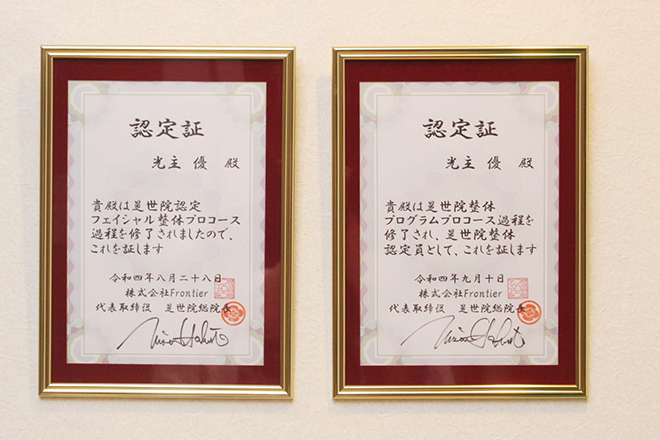 認定証
光主 優 殿
貴殿は是世院認定
フェイシャル整体プロコース
過程を修了されましたので、
これを証します
令和四年八月二十八日
株式会社Frontier
代表取締役 是世院総院長
認定証
光主 優 殿
貴殿は是世院整体
プログラムプロコース過程を
修了され、是世院整体
認定員として、これを証します
令和四年九月十日
株式会社Frontier
代表取締役 是世院総院長